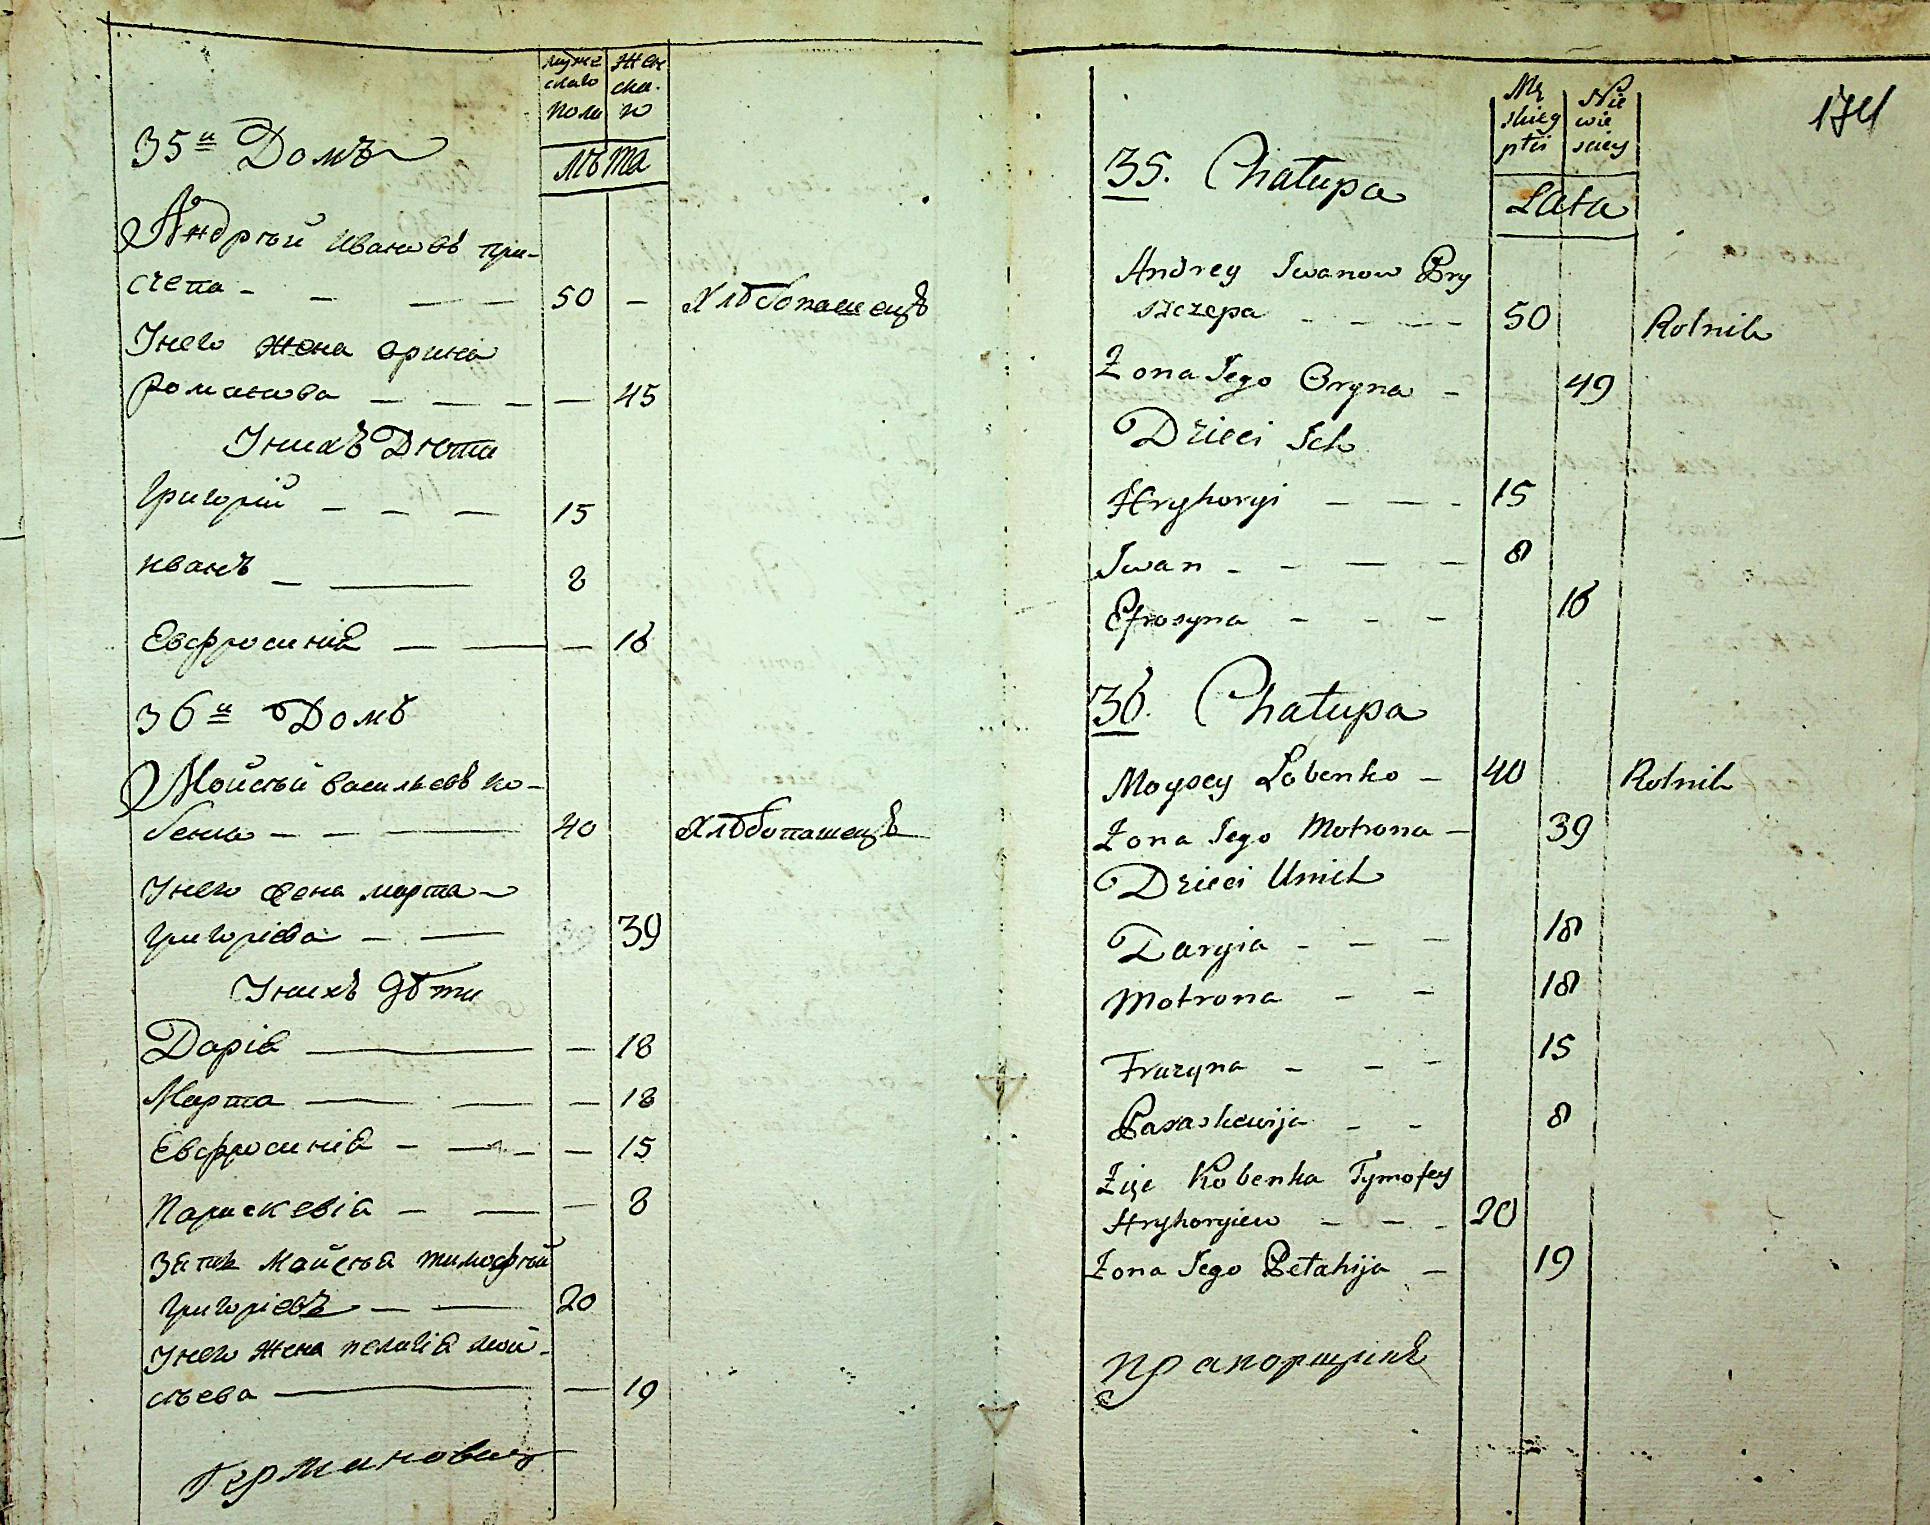 мужескаго полу
женскаго
лѣта
35й Домъ
Андрѣй Ивановъ При-
счепа - - - - 50 - Хлѣбопашецъ
У него жена Орина
Романова - - - - 45
У нихъ Дѣти
Григорій - - - 15
Иванъ - - 8
Евфросинія - - - 16
36й Домъ
Мойсѣй Васильевъ Ко-
бенка - - - 40 Хлѣбопашецъ
У него жена Марта
Григоріева - - 39
У нихъ дѣти
Дарія - - 18
Марта - - - 18
Евфросинія - - - - 15
Параскевія - - - 8
Зять Мойсѣя Тимофѣй
Григоріевъ - - 20
У него жена Пелагія Мой-
сѣева - - 19
Германовичъ
174
Męskiey płci
Niewiesciey
Lata
35. Chałupa
Andrey Iwanow Pry
szczepa - - - - 50 Rolnik
Zona Jego Oryna - 49
Dzieci Ich
Hryhoryi - - - 15
Iwan - - - - 8
Efrosyna - - - 16
36. Chałupa
Moysey Lobenko - 40 Rolnik
Zona Jego Motrona - 39
Dzieci Unich
Daryia - - - 18
Motrona - - 18
Fruzyna - - - 15
Paraskewija - - 8
Zięc Kobenka Tymofey
Hryhoryiew - - - 20
Zona Jego Pełahija - 19
Прапорщикъ